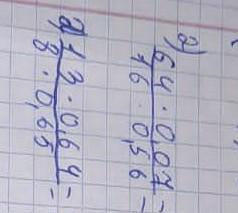 г) 64 · 0,07 =
16 · 0,56
д) 13 · 0,64 =
8 · 0,65